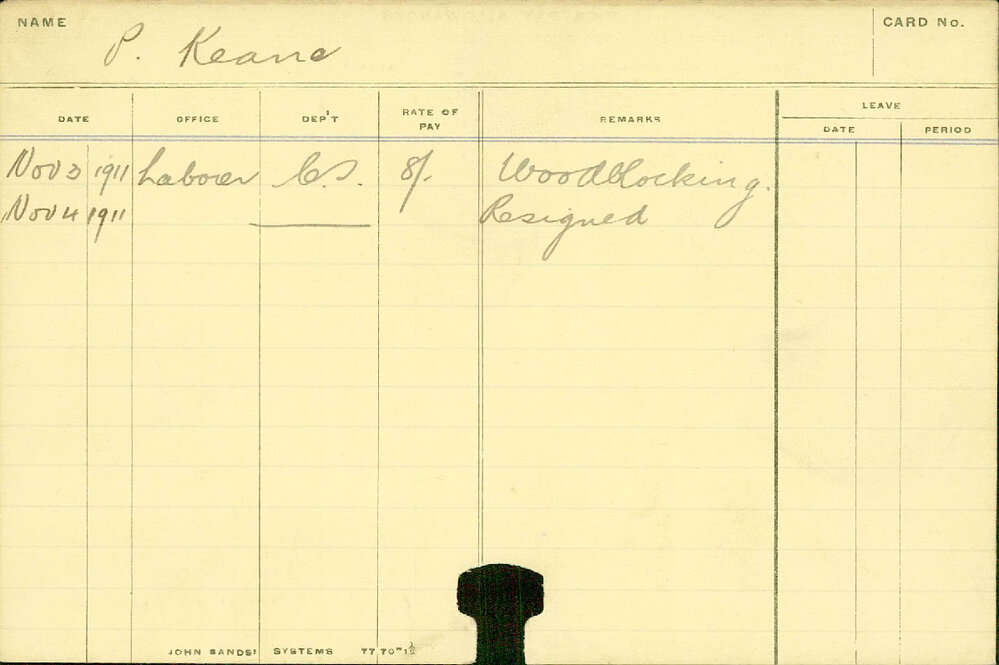 NAME P. Keane CARD No.
DATE OFFICE DEP'T RATE OF PAY REMARKS LEAVE
DATE PERIOD
Nov 3 1911 Laborer C.S. 8/- Woodblocking.
Nov 4 1911 Resigned
JOHN SANDS' SYSTEMS